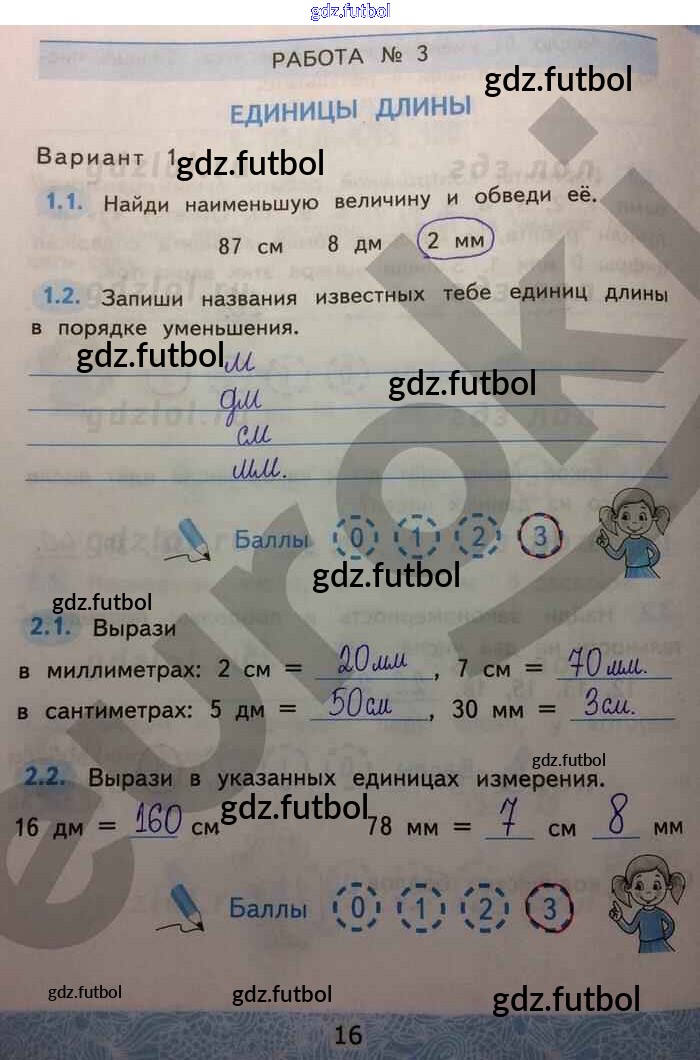 gdz.futbol
РАБОТА № 3
gdz.futbol
ЕДИНИЦЫ ДЛИНЫ
Вариант 1 gdz.futbol
1.1. Найди наименьшую величину и обведи её.
87 см 8 дм 2 мм
1.2. Запиши названия известных тебе единиц длины
в порядке уменьшения.
gdz.futbol м
gdz.futbol
дм
см
мм.
Баллы 0 1 2 3
gdz.futbol
gdz.futbol
2.1. Вырази
в миллиметрах: 2 см = 20 мм, 7 см = 70 мм.
в сантиметрах: 5 дм = 50 см, 30 мм = 3 см.
gdz.futbol
2.2. Вырази в указанных единицах измерения.
gdz.futbol
16 дм = 160 см 78 мм = 7 см 8 мм
Баллы 0 1 2 3
gdz.futbol gdz.futbol gdz.futbol
16
euroki